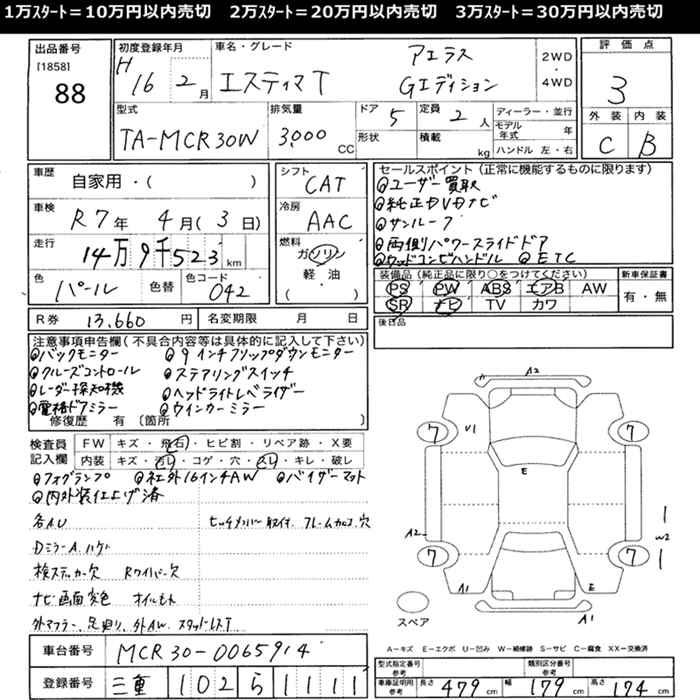 1万ｽﾀｰﾄ＝10万円以内売切　2万ｽﾀｰﾄ＝20万円以内売切　3万ｽﾀｰﾄ＝30万円以内売切
出品番号
[1858]
88
初度登録年月
H16 2月
車名・グレード
エスティマT
アエラス
Gエディション
2WD
・
4WD
評価点
3
外装 内装
C B
型式
TA-MCR30W
排気量
3,000 CC
ドア 5
形状
定員 2人
積載 kg
ディーラー・並行
モデル年式 年
ハンドル 左・右
車歴
自家用・( )
車検
R7年 4月(3日)
走行
14万9千523 km
色
パール
色替
色コード
042
シフト
CAT
冷房
AAC
燃料
ガソリン
軽・油
( )
セールスポイント(正常に機能するものに限ります)
◎ユーザー買取
◎純正DVDナビ
◎サンルーフ
◎両側パワースライドドア
◎ウッドコンビハンドル ◎ETC
装備品(純正品に限り○をつけてください)
PS PW ABS エアB AW
SR ナビ TV カワ
新車保証書
有・無
後日品
R券 13,660円
名変期限 月 日
注意事項申告欄(不具合内容等は具体的に記入して下さい)
◎バックモニター ◎9インチフリップダウンモニター
◎クルーズコントロール ◎ステアリングスイッチ
◎レーダー探知機 ◎ヘッドライトレベライザー
◎電格ドアミラー ◎ウインカーミラー
修復歴 有 〔箇所 〕
検査員記入欄
FW キズ・飛石・ヒビ割・リペア跡・X要
内装 キズ・汚れ・コゲ・穴・スレ・キレ・破レ
◎フォグランプ ◎社外16インチAW ◎バイザーマット
◎内外装仕上げ済
各AU
ヒッチメンバー取付、フレーム加工、穴
DミラーA、ハゲ
検ステッカー欠 Rワイパー欠
ナビ画面変色 オイルもれ
外マフラー、足廻り、外AW、スタッドレスT
車台番号 MCR30-0065914
登録番号 三重 102 ら 1111
A2
7
7
U1
E
A2
W2
7
7
A1
E
A1
スペア
A－キズ E－エクボ U－凹み W－補修跡 S－サビ C－腐食 XX－交換済
型式指定番号 参考
類別区分番号 参考
車庫証明用 参考
長さ 479cm
幅 179cm
高さ 174cm